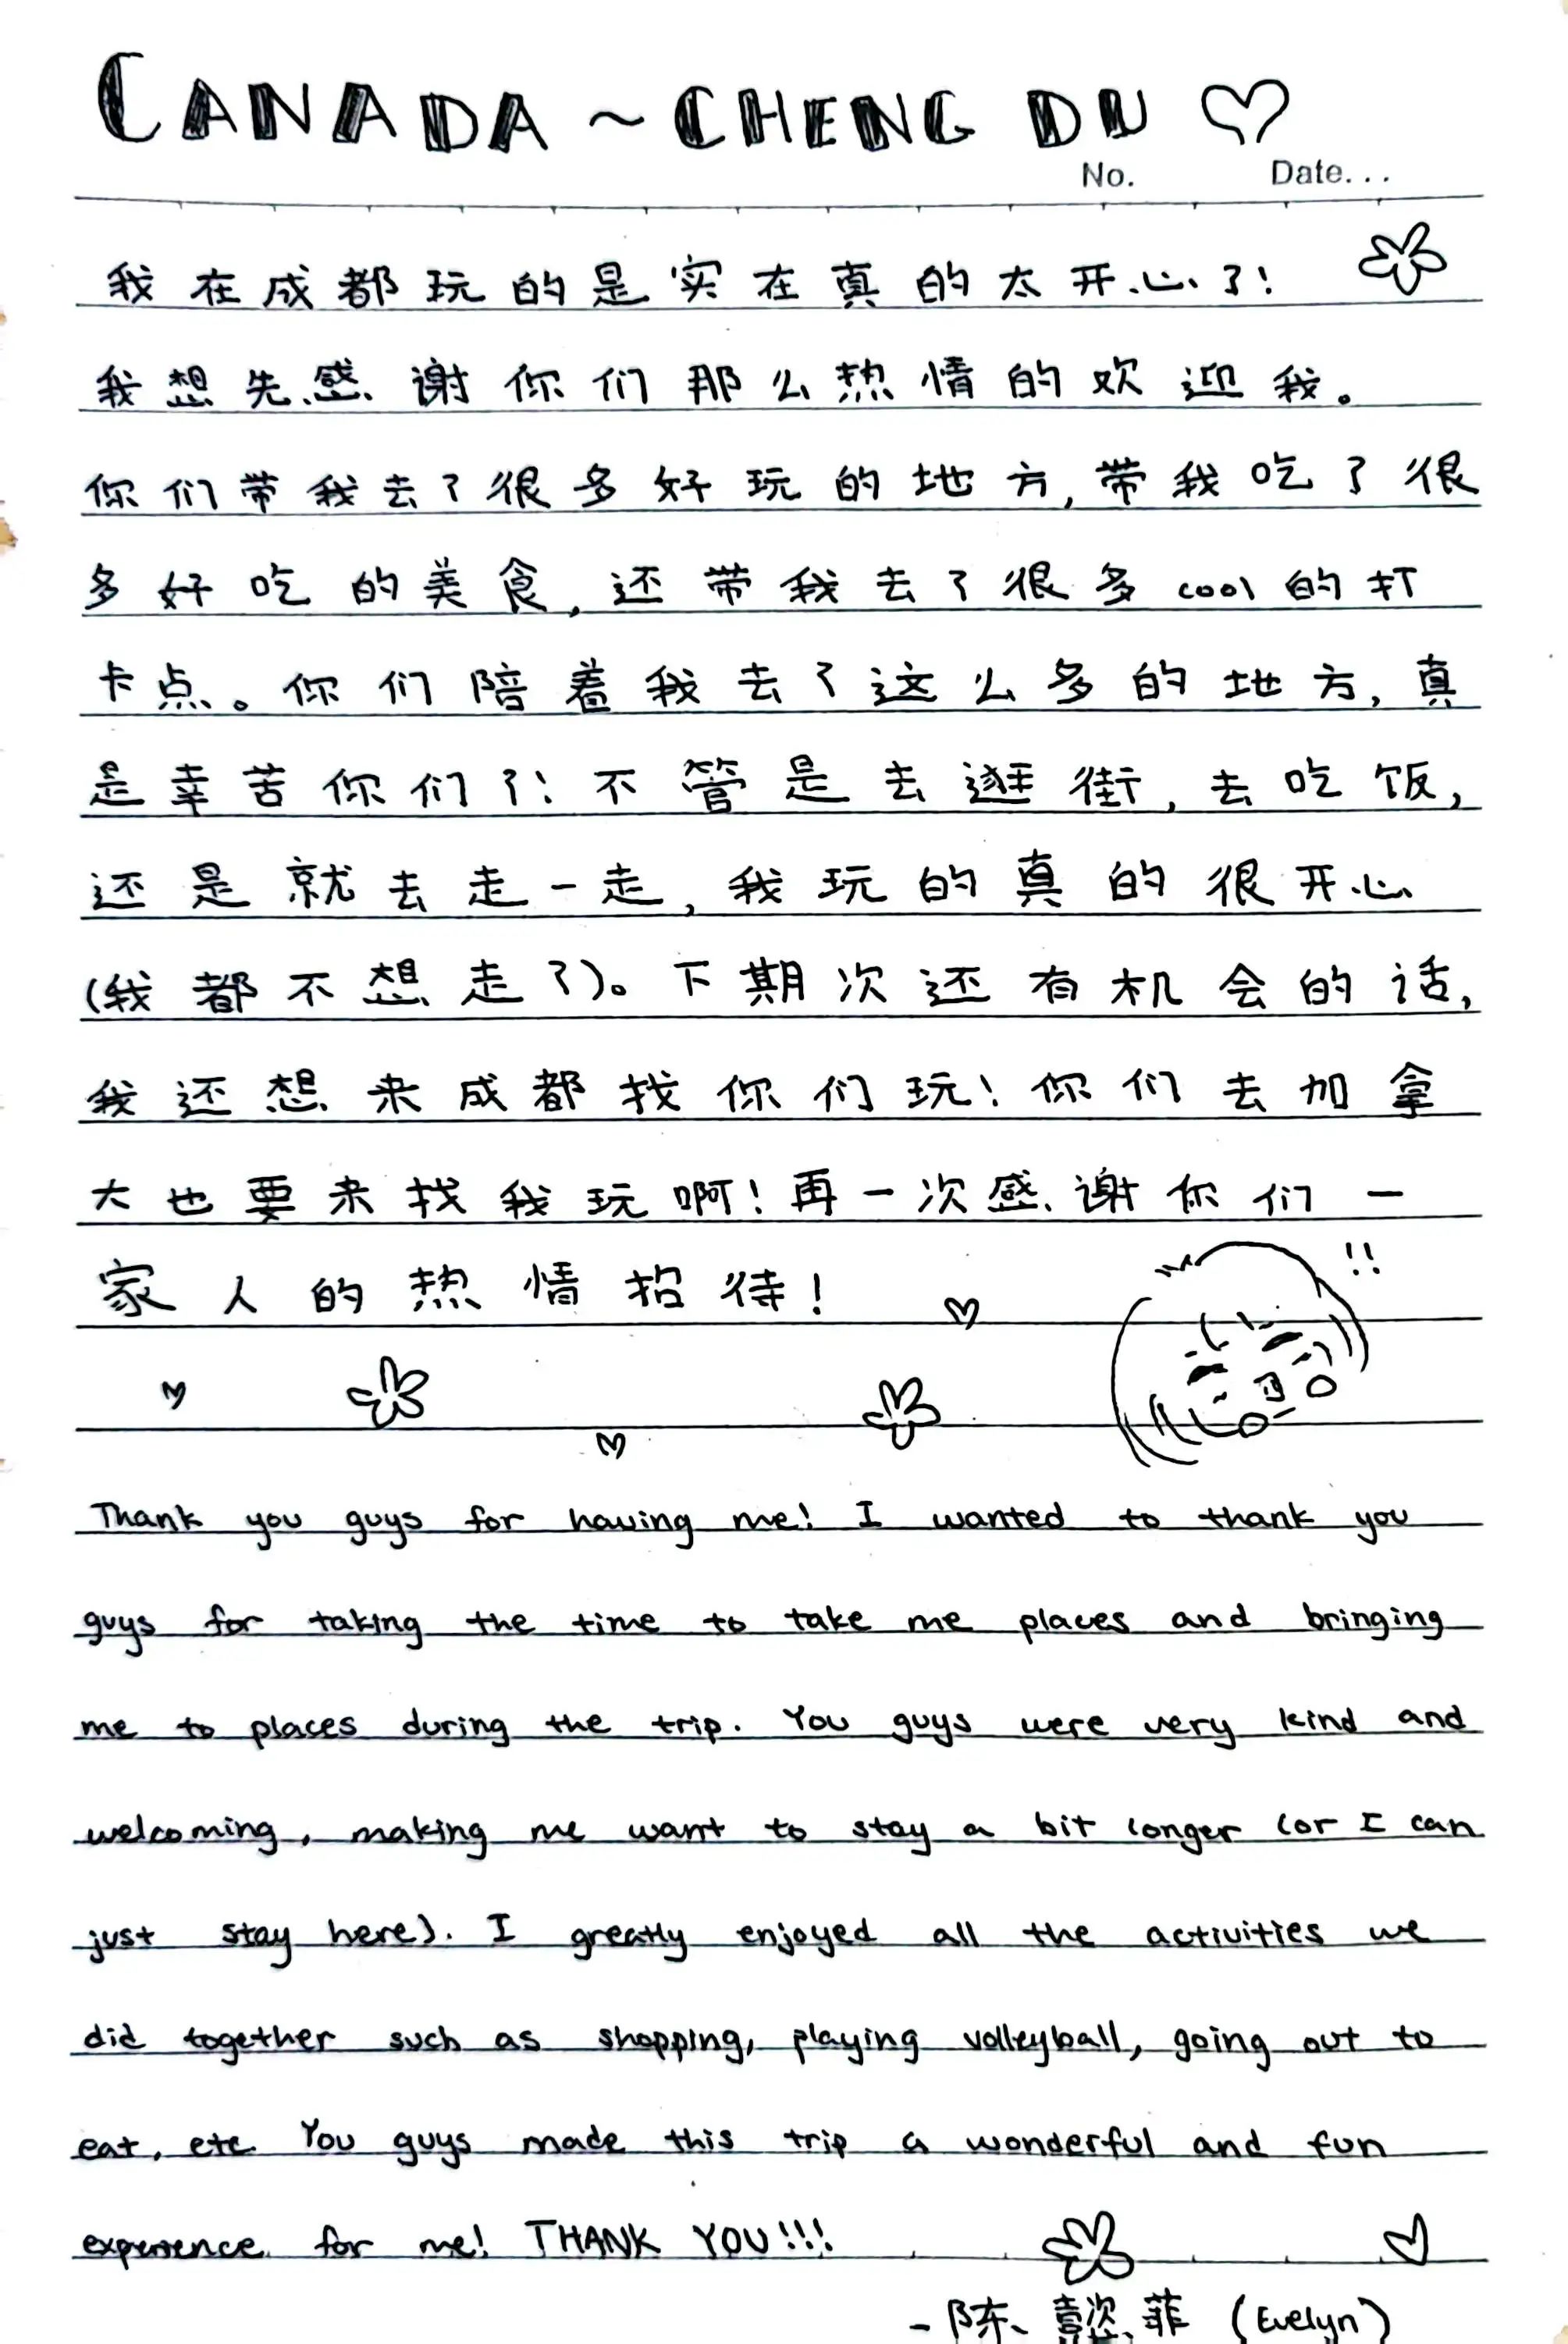 CANADA ~ CHENG DU ♡
No. Date...
我在成都玩的是实在真的太开心了!
我想先感谢你们那么热情的欢迎我。
你们带我去了很多好玩的地方,带我吃了很
多好吃的美食,还带我去了很多cool的打
卡点。你们陪着我去了这么多的地方,真
是幸苦你们了!不管是去逛街,去吃饭,
还是就去走一走,我玩的真的很开心
(我都不想走了)。下期次还有机会的话,
我还想来成都找你们玩!你们去加拿
大也要来找我玩啊!再一次感谢你们一
家人的热情招待!
!!
Thank you guys for having me! I wanted to thank you
guys for taking the time to take me places and bringing
me to places during the trip. You guys were very kind and
welcoming, making me want to stay a bit longer (or I can
just stay here). I greatly enjoyed all the activities we
did together such as shopping, playing volleyball, going out to
eat, etc. You guys made this trip a wonderful and fun
experience for me! THANK YOU!!!
-陈懿菲 (Evelyn)